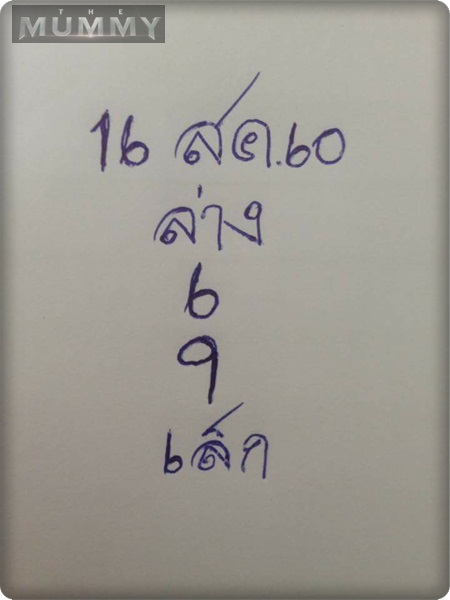 THE
MUMMY
16 สค.60
ล่าง
6
9
เลิก